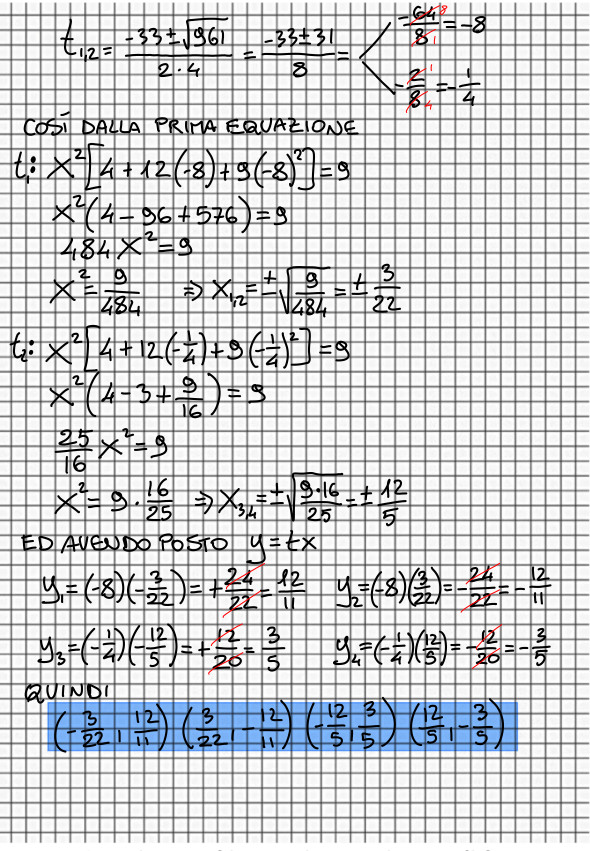 t₁,₂ = (-33 ± √961)/(2·4) = (-33 ± 31)/8 = -64/8 = -8
-2/8 = -1/4
COSÌ DALLA PRIMA EQUAZIONE
t₁: x²[4 + 12(-8) + 9(-8)²] = 9
x²(4 - 96 + 576) = 9
484x² = 9
x² = 9/484 ⇒ x₁,₂ = ±√(9/484) = ± 3/22
t₂: x²[4 + 12(-1/4) + 9(-1/4)²] = 9
x²(4 - 3 + 9/16) = 9
25/16 x² = 9
x² = 9 · 16/25 ⇒ x₃,₄ = ±√(9·16/25) = ± 12/5
ED AVENDO POSTO y = tx
y₁ = (-8)(-3/22) = +24/22 = 12/11 y₂ = (-8)(3/22) = -24/22 = -12/11
y₃ = (-1/4)(-12/5) = +12/20 = 3/5 y₄ = (-1/4)(12/5) = -12/20 = -3/5
QUINDI
(-3/22, 12/11) (3/22, -12/11) (-12/5, 3/5) (12/5, -3/5)